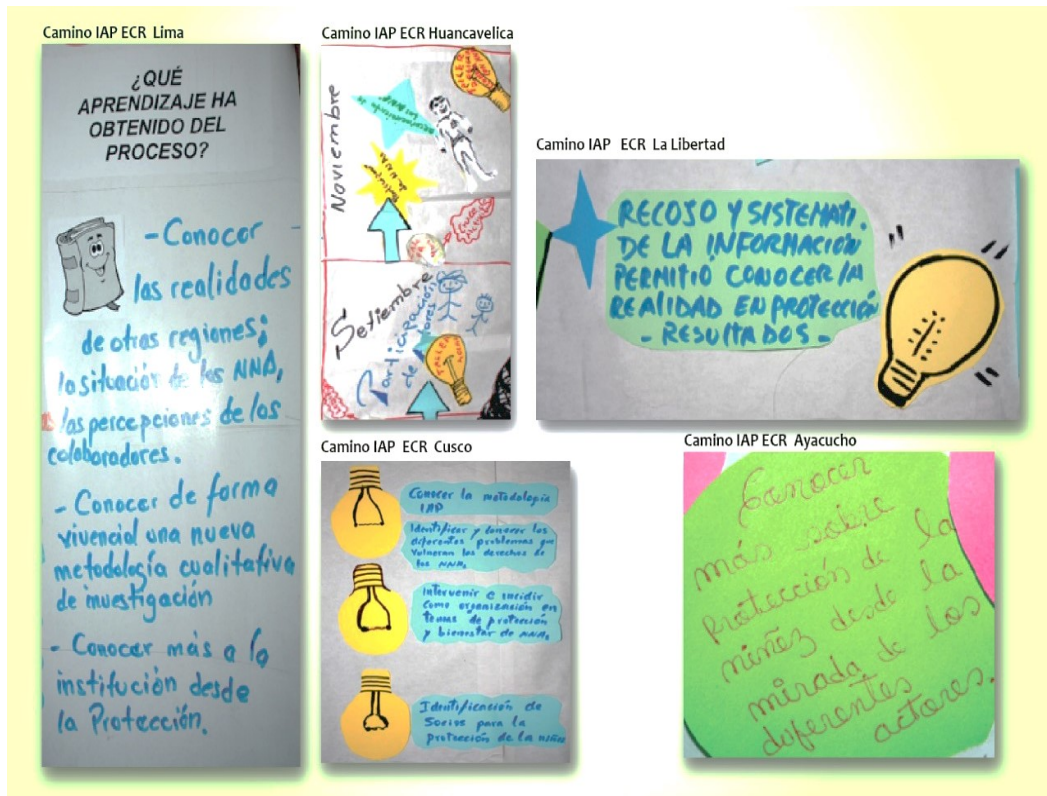 Camino IAP ECR Lima
¿QUÉ
APRENDIZAJE HA
OBTENIDO DEL
PROCESO?
- Conocer
las realidades
de otras regiones;
la situación de los NNA,
las percepciones de los
colaboradores.
- Conocer de forma
vivencial una nueva
metodología cualitativa
de investigación
- Conocer más a la
institución desde
la Protección.
Camino IAP ECR Huancavelica
Noviembre
Setiembre
Participación
de
TALLER
Camino IAP ECR La Libertad
RECOJO Y SISTEMATI.
DE LA INFORMACIÓN
PERMITIO CONOCER LA
REALIDAD EN PROTECCIÓN
- RESULTADOS -
Camino IAP ECR Cusco
Conocer la metodología
IAP
Identificar y conocer los
diferentes problemas que
vulneran los derechos de
los NNAs
Intervenir e incidir
como organización en
temas de protección
y bienestar de NNAs
Identificación de
Socios para la
protección de la niñez
Camino IAP ECR Ayacucho
Conocer
más sobre
Protección de la
niñez desde la
mirada de los
diferentes
actores.